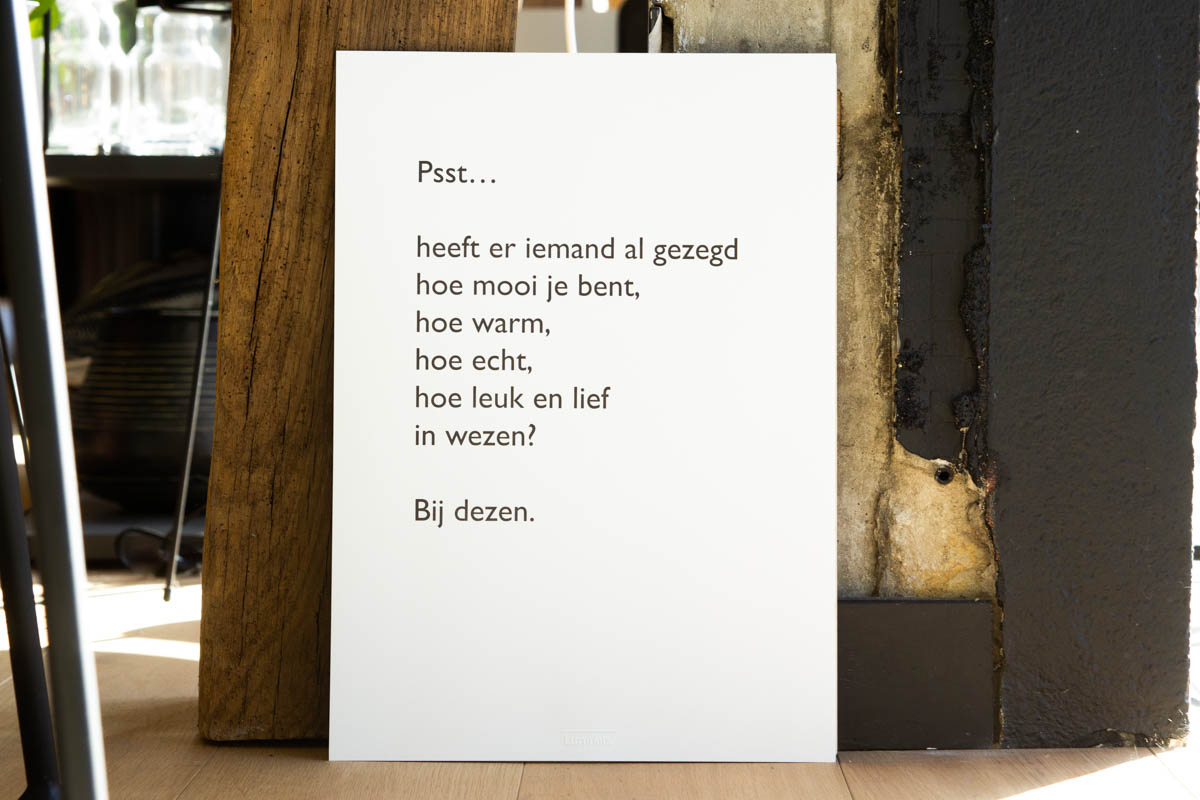 Psst...
heeft er iemand al gezegd
hoe mooi je bent,
hoe warm,
hoe echt,
hoe leuk en lief
in wezen?
Bij dezen.